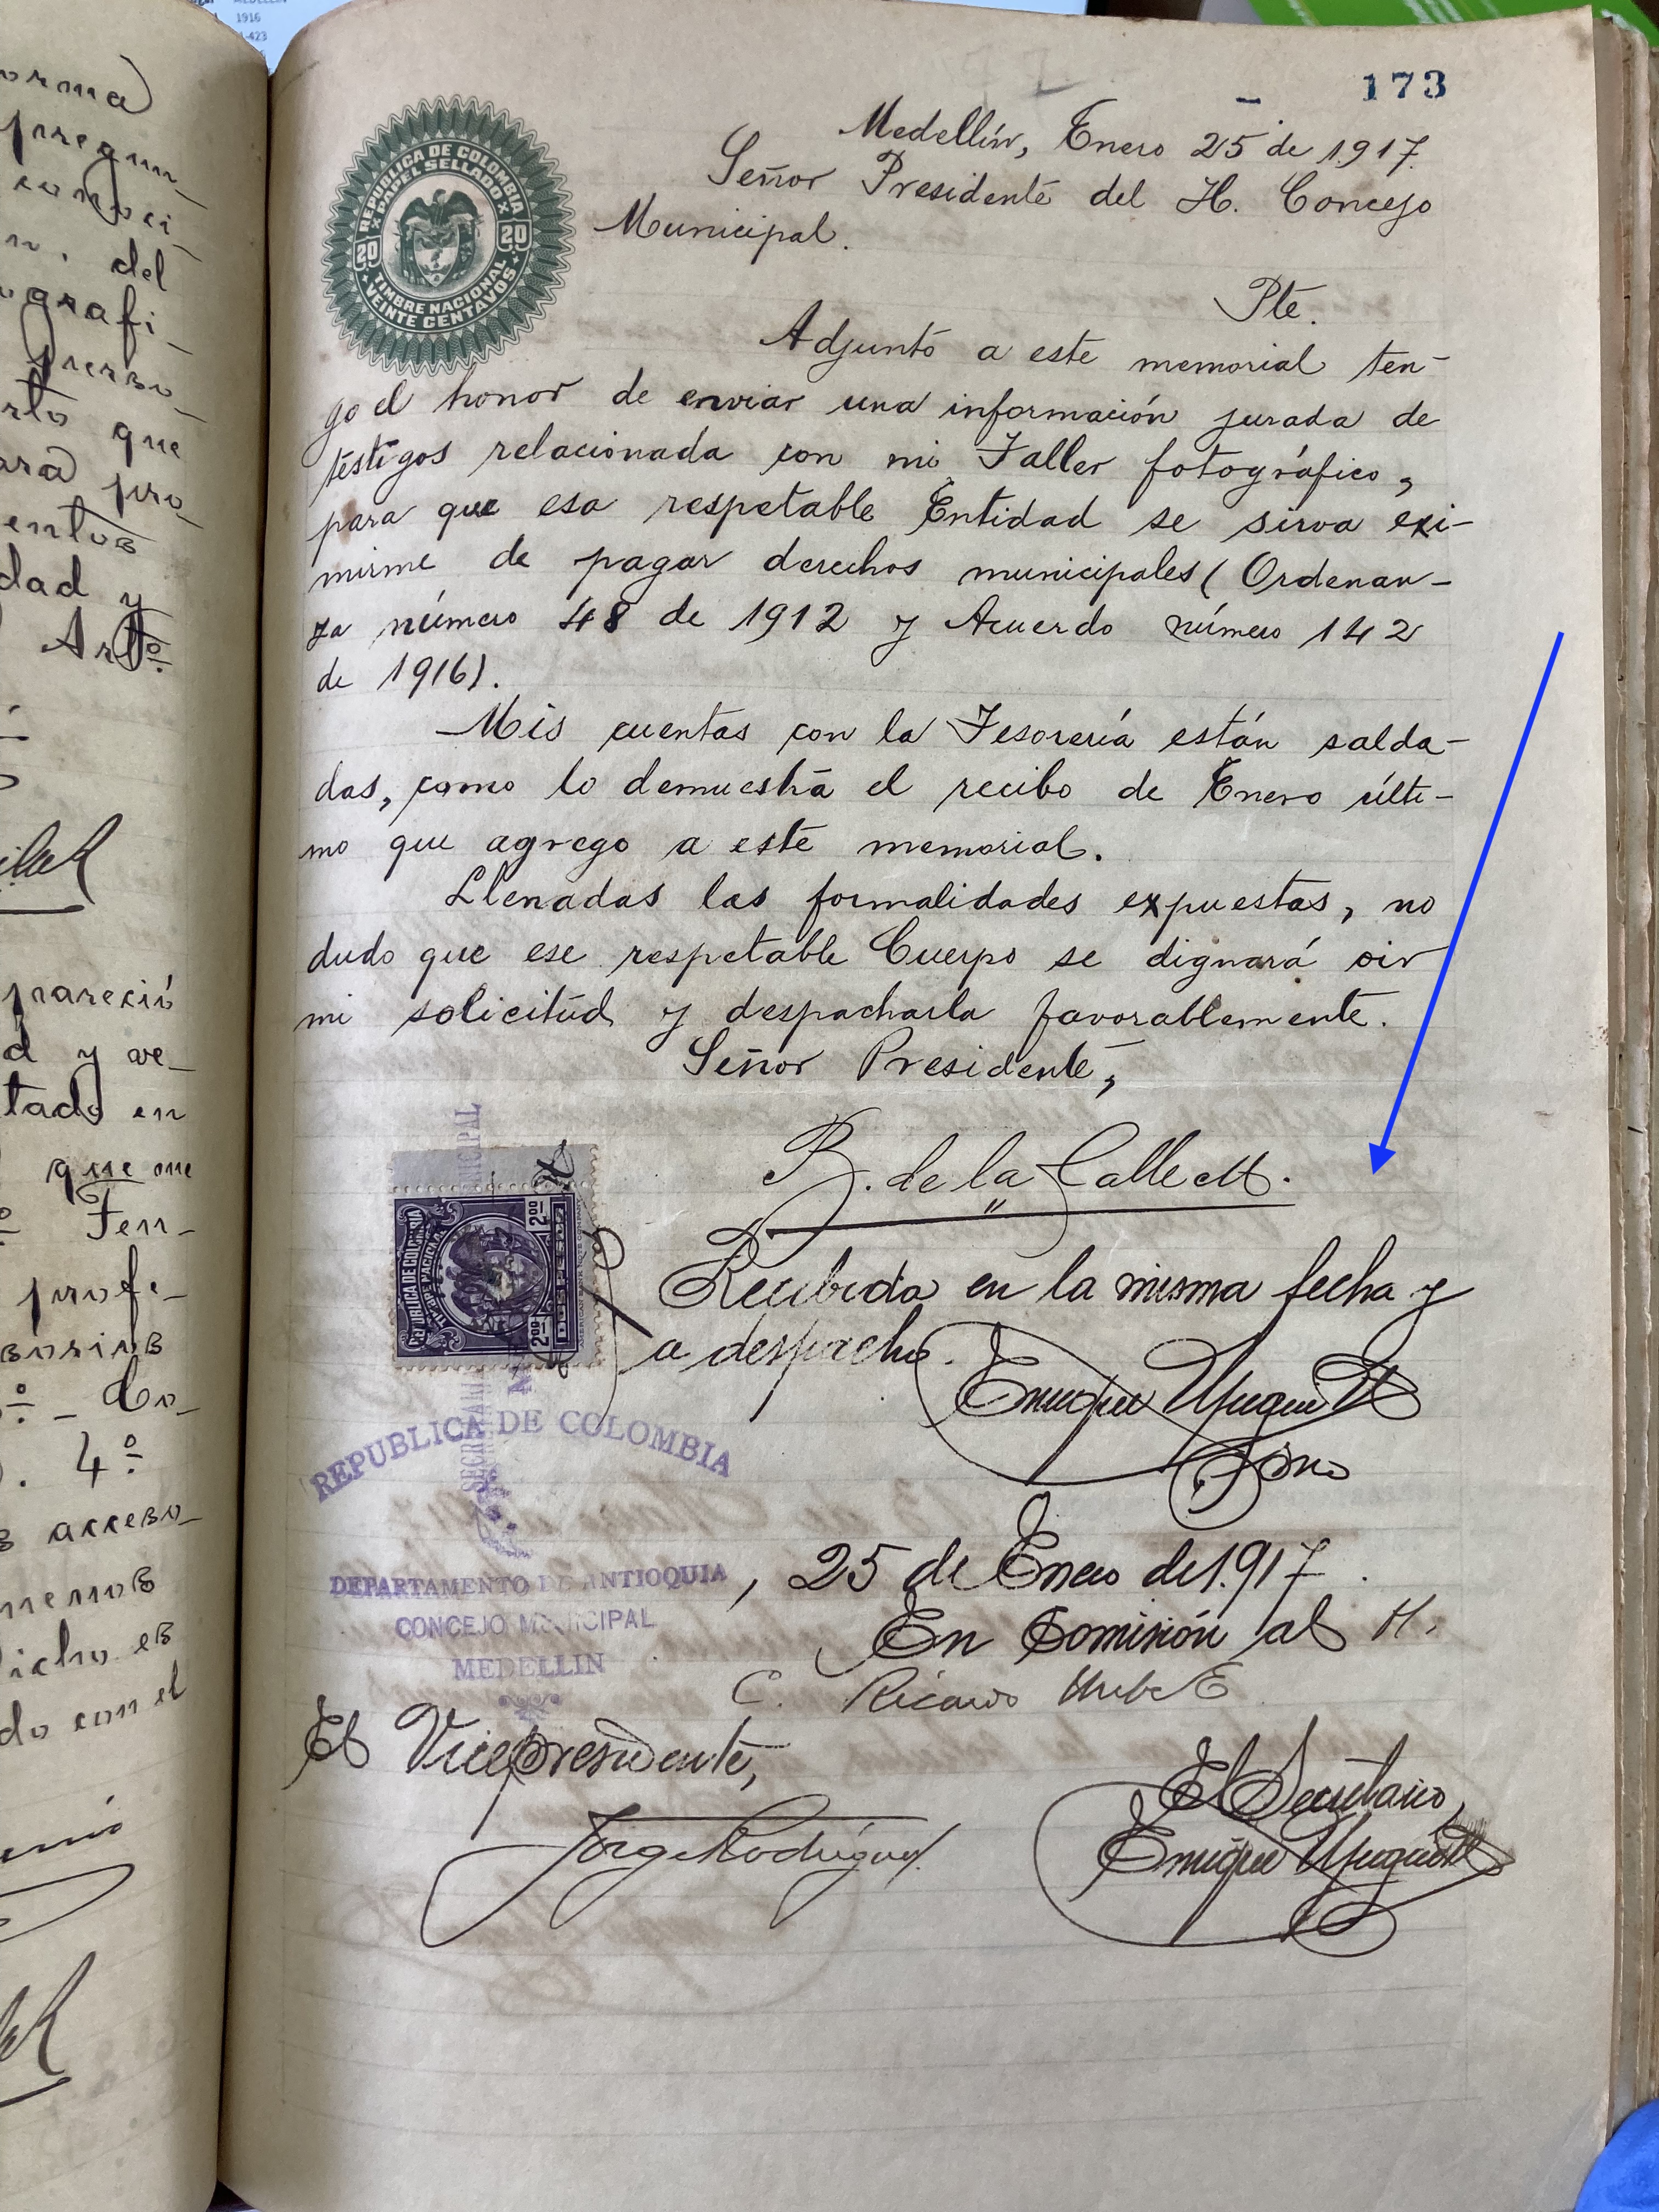 MEDELLIN
1916
-423
orma
pregun-
conoci-
n. del
ografi-
perso-
rto que
ara pro-
entos
dad y
Arto.
pareció
d y ve-
tado en
que me
Fer-
profe-
4º
acceso-
menos
dicho es
do con el
173
Medellín, Enero 25 de 1917.
Señor Presidente del H. Concejo
Municipal.
REPUBLICA DE COLOMBIA
PAPEL SELLADO
20 20
TIMBRE NACIONAL
VEINTE CENTAVOS
Pte.
Adjunto a este memorial ten-
go el honor de enviar una información jurada de
testigos relacionada con mi Taller fotográfico,
para que esa respetable Entidad se sirva exi-
mirme de pagar derechos municipales (Ordenan-
za número 48 de 1912 y Acuerdo número 142
de 1916).
Mis cuentas con la Tesorería están salda-
das, como lo demuestra el recibo de Enero últi-
mo que agrego a este memorial.
Llenadas las formalidades expuestas, no
dudo que ese respetable Cuerpo se dignará oir
mi solicitud y despacharla favorablemente.
Señor Presidente,
B. de la Calle M.
REPUBLICA DE COLOMBIA
2.00 2.00
Recibida en la misma fecha y
a despacho.
Enrique
Srio
REPUBLICA DE COLOMBIA
DEPARTAMENTO DE ANTIOQUIA, 25 de Enero de 1.917.
CONCEJO MUNICIPAL
MEDELLIN
En Comisión al H.
C. Ricardo Uribe E
El Vicepresidente,
Jorge Rodríguez.
El Secretario,
Enrique